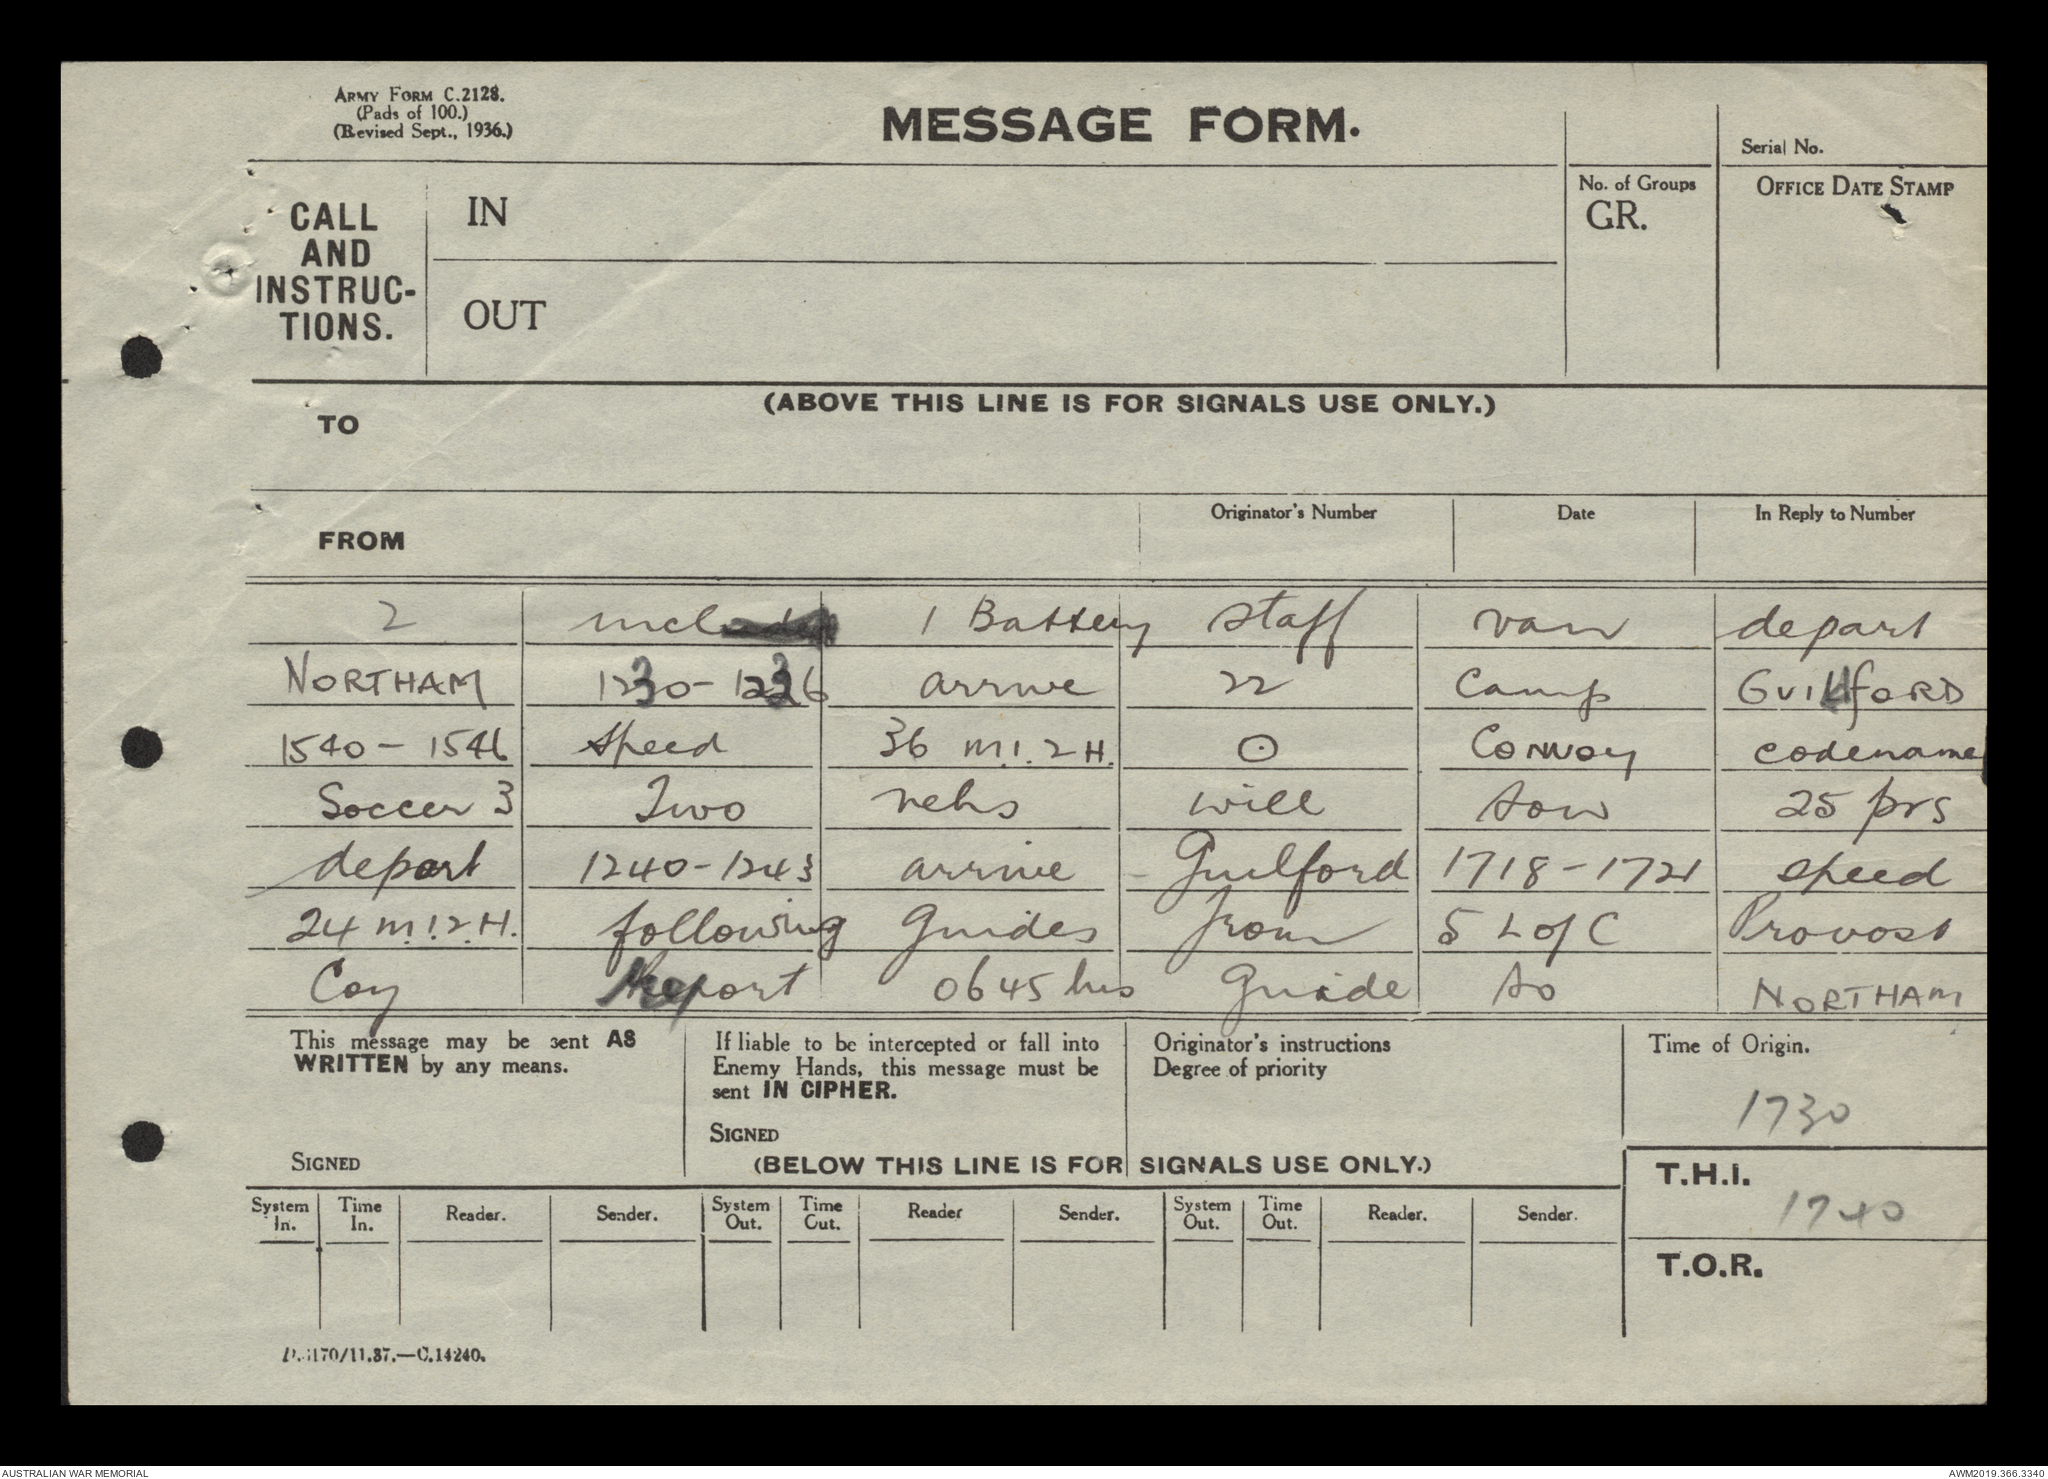 ARMY FORM C.2128.
(Pads of 100.)
(Revised Sept., 1936.)
MESSAGE FORM.
Serial No.
CALL
AND
INSTRUC-
TIONS.
IN
OUT
No. of Groups
GR.
OFFICE DATE STAMP
(ABOVE THIS LINE IS FOR SIGNALS USE ONLY.)
TO
FROM
Originator's Number Date In Reply to Number
2 incl 1 Battery staff van depart
NORTHAM 1230-1236 arrive 22 Camp GUILFORD
1540-1546 speed 36 M.I.2H. ⊙ Convoy codename
Soccer 3 Two vehs will tow 25 prs
depart 1240-1243 arrive - Guilford 1718-1721 speed
24 M.I.2.H. following Guides from 5 L of C Provost
Coy Report 0645 hrs Guide to NORTHAM
This message may be sent AS
WRITTEN by any means.
SIGNED
If liable to be intercepted or fall into
Enemy Hands, this message must be
sent IN CIPHER.
SIGNED
Originator's instructions
Degree of priority
Time of Origin.
1730
(BELOW THIS LINE IS FOR SIGNALS USE ONLY.)
T.H.I.
1740
T.O.R.
System In. Time In. Reader. Sender. System Out. Time Out. Reader Sender. System Out. Time Out. Reader. Sender.
/11.37.—C.14240.
AUSTRALIAN WAR MEMORIAL
AWM2019.366.3340